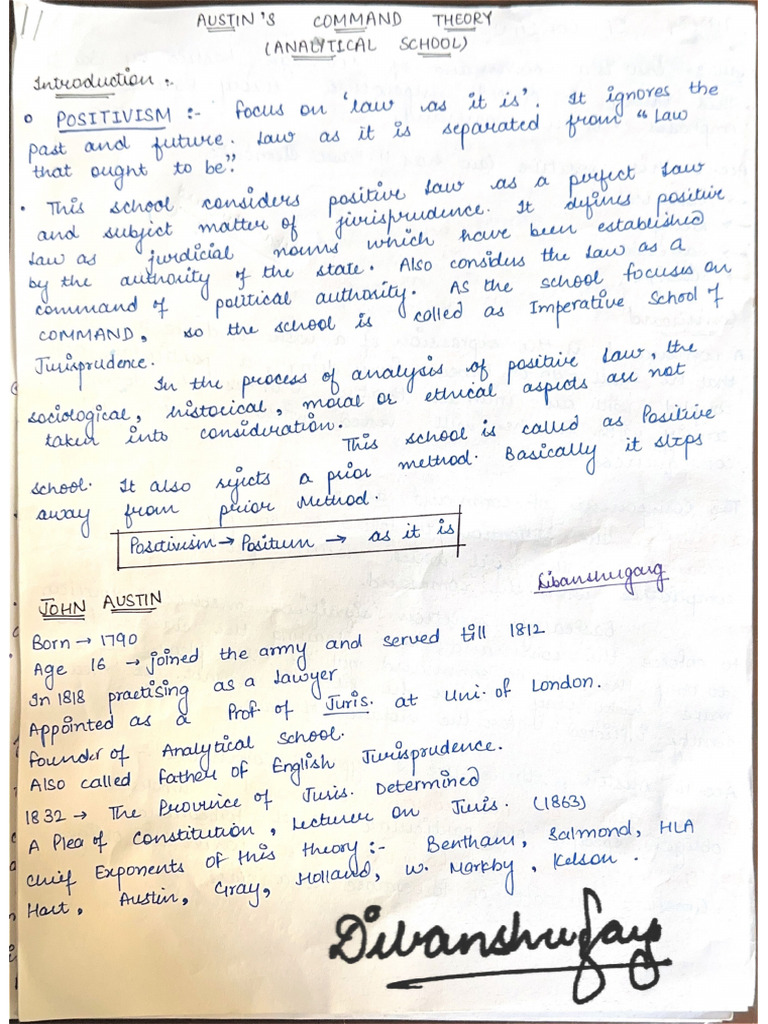 11
AUSTIN'S COMMAND THEORY
(ANALYTICAL SCHOOL)
Introduction :.
o POSITIVISM :- focus on 'law as it is'. It ignores the
past and future. Law as it is separated from "Law
that ought to be."
• This school considers positive law as a perfect law
and subject matter of jivrisprudence. It defines positive
law as jurdicial noums which have been established
by the authority of the state. Also considus the law as a
command of political authority. As the school focuses on
COMMAND, so the school is called as Imperative School of
Jurisprudence.
In the process of analysis of positive law, the
sociological, historical, moral or ethical aspects are not
taken into consideration.
This school is called as Positive
school. It also rejects a prior method. Basically it slips
away from prior Method.
Positivism → Positum → as it is
Dibanshugarg
JOHN AUSTIN
Born → 1790
Age 16 → joined the army and served till 1812
In 1818 practising as a lawyer
Appointed as a Prof of Juris. at Uni. of London.
founder of Analytical School.
Also called father of English Jurisprudence.
1832 → The Province of Juris. Determined
A Plea of Constitution, Lecturer on Juris. (1863)
Chief Exponents of this theory :- Bentham, Salmond, HLA
Hart, Austin, Gray, Holland, W. Markby, Kelson.
Dibanshugarg